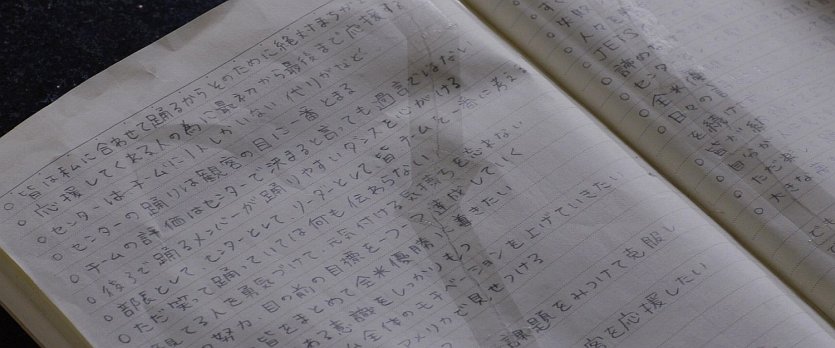 ○皆は私に合わせて踊るからそのために絶対まちが
○応援してくれる人の為に最初から最後まで応援する
○センターはチームに1人しかいない 代りがなど
○センターの踊りは観客の目に一番とまる
○チームの評価はセンターで決まると言っても過言ではない
○後ろで踊るメンバーが踊りやすいダンスを心がける
○部長として、センターとして、リーダーとして皆
○ただ笑って踊っていては何も伝わらない
見てる人を勇気づけて、元気付ける気持ちを忘れない
努力、目の前の目標を一つ一つ達成していく
皆をまとめて全米優勝に導きたい
ある意識をしっかりもつ
ム全体のモチベーションを上げていきたい
アメリカで見せつける
課題をみつけて克服し
客を応援したい
○失敗
○人を
○JETS
○諦め
○センター
○全米優
○日々の
を続
○皆が
○自分が
○ただ楽し
○大きな